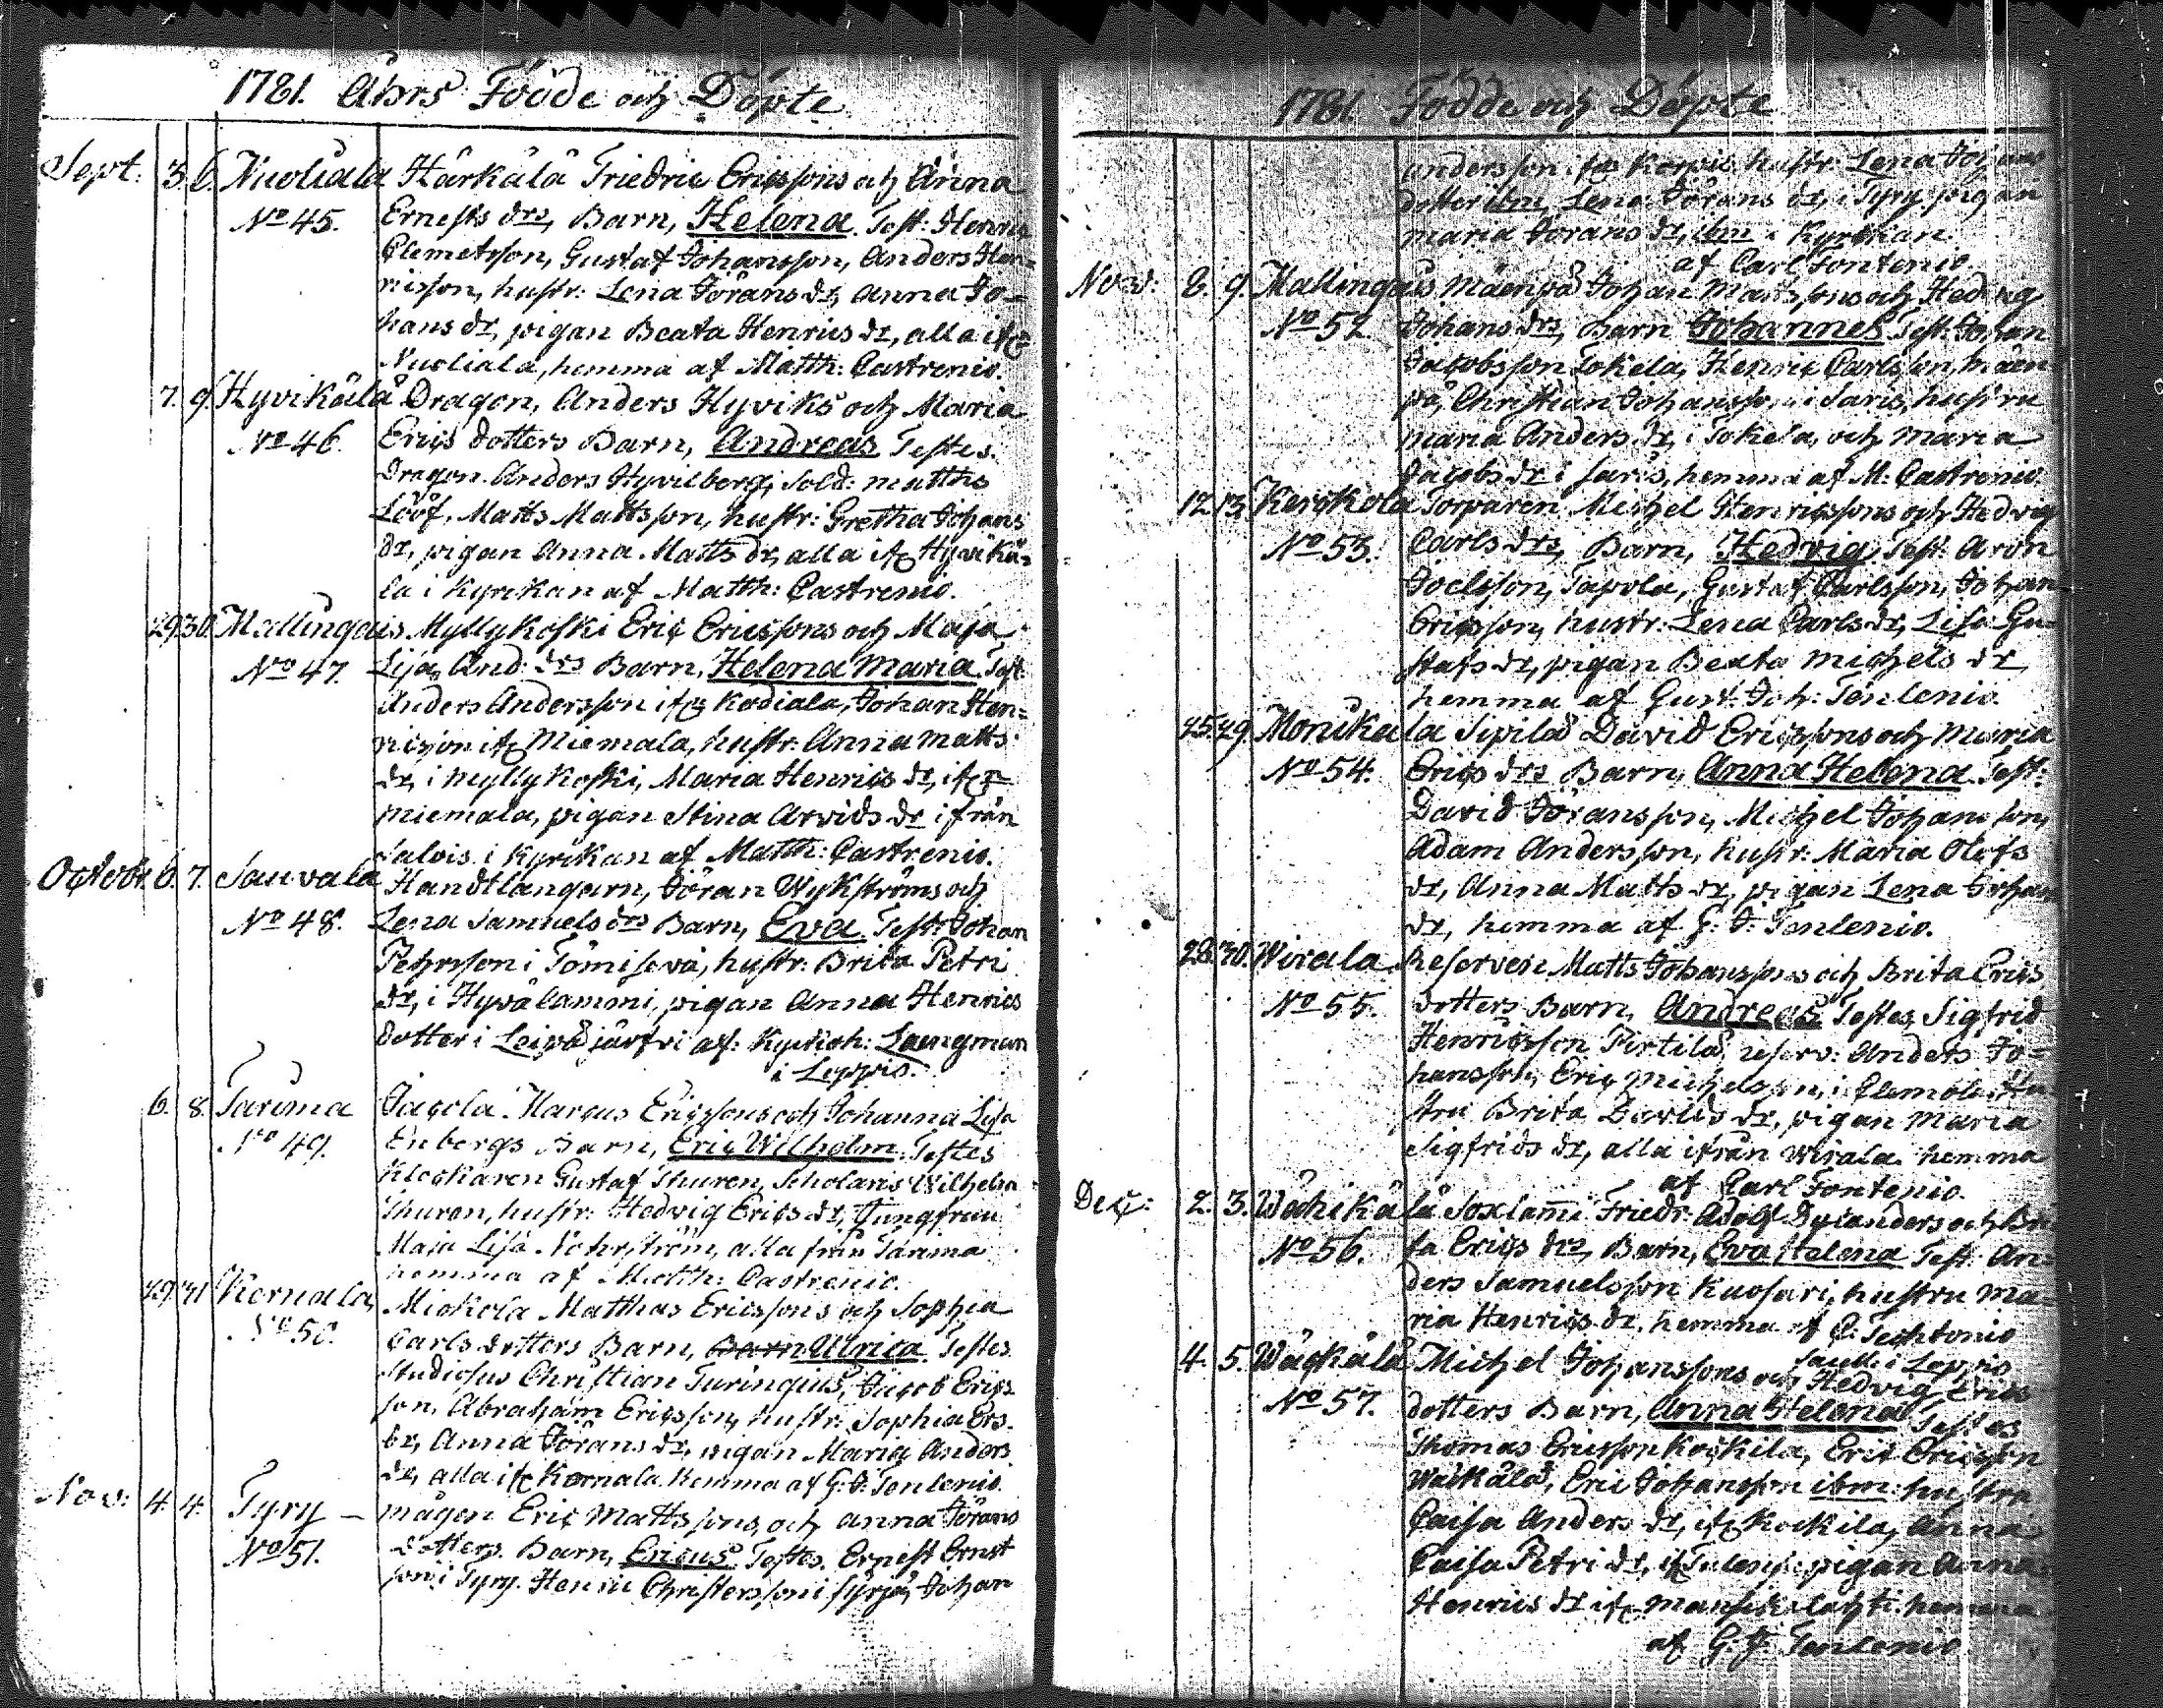 1781. Åhrs Födde och Döpte
Sept. 3. 6. Nuoliala Härkälä Friedric Ericssons och Anna
No 45. Ernests drs, Barn, Helena. Test: Henric
Clemetsson, Gustaf Johansson, Anders Hen=
ricsson, hustr: Lena Jörans dr, Anna Jo=
hans dr, pigan Beata Henrics dr, alla ifr
Nuoliala, hemma af Matth: Castrenio.
7. 9. Hyvikälä Dragon, Anders Hyviks och Maria
No 46. Erics dotters Barn, Andreas Testes.
Dragon Anders Hyvilberg, Sold: Matths
Lööf, Matts Mattsson, hustr: Gretha Johans
dr, pigan Anna Matts dr, alla ifr Hyvikä=
la i Kyrkan af Matth: Castrenio.
29. 30. Mallingais Myllykoski Eric Ericssons och Maja
No 47. Lisa And: drs Barn, Helena Maria. Test:
Anders Andersson ifr Kodiala, Johan Hen=
ricsson ifr Miemala, hustr: Anna Matts
dr, i Myllykoski, Maria Henrics dr, ifr
Miemala, pigan Stina Arvids dr ifrån
Salois i Kyrkan af Matth: Castrenio.
Octobr. 6. 7. Sauvala Handtlangarn, Jöran Wykströms och
No 48. Lena Samuels drs Barn, Eva. Test: Johan
Pehrsson i Tömisevä, hustr: Brita Petri
dr, i Hyvälammi, pigan Anna Henrics
dotter i Leipäjärfvi af: Kyrioh: Laengman
i Loppis.
6. 8. Tarima Jacola Marcus Ericssons och Johanna Lisa
No 49. Enbergs Barn, Eric Wilhelm. Testes
Klockaren Gustaf Thuren, Scholaris Wilhelm
Thuren, hustr: Hedvig Erics dr, Jungfrun
Maja Lisa Nohrström, alla från Tarima
hemma af Matth: Castrenio.
29. 31. Kernala, Miokola Matthas Ericssons och Sophia
No 50. Carls dotters Barn, Barn Ulrica. Testes
Studiosus Christian Turingius, Jacob Erics
son, Abraham Ericsson, hustr: Sophia Ers.
dr, Anna Jörans dr, pigan Maria Anders
dr, alla ifr Kernala. hemma af G: J: Tenlenio.
Nov: 4. 4. Tyry — mågen Eric Mattssons, och Anna Jörans
No 51. dotters. Barn, Ericus Testes. Ernest Ernst
son i Tyry. Henric Christersson i Syrjä, Johan
1781. Födde och Döpte
andersson ifr Korpis hustr: Lena Johans
dotter ibm, Lena Jörans dr, i Tyry pigan
maria Jörans dr, ibm i Kyrkan.
af Carl Fontenio.
Nov: 8. 9. Mallingais Mäenpä Johan Mattssons och Hedvig
No 52. Johans drs, Barn Johannes Test: Johan
Jacobsson Tokela, Henric Carlsson, Mäen
pä, Christian Johansson i Saris, hustru
Maria Anders dr, i Tokela, och Maria
Jacobs dr i Saris, hemma af M: Castrenio.
12. 13. Kerckola Torparen Michel Henricssons och Hedvig
No 53. Carls drs, Barn, Hedvig. Test: Aron
Joelsson, Tapola, Gustaf Carlsson, Johan
Ericsson, hustr: Lena Carls dr, Lisa Gu=
stafs dr, pigan Beata Michels dr
hemma af Gust: Joh: Tenlenio.
25. 29. Monikala Sipilä David Ericssons och Maria
No 54. Erics drs Barn, Anna Helena. Test:
David Jöransson, Michel Johansson,
Adam Andersson, hustr: Maria Olofs
dr, Anna Matts dr, pigan Lena Johans
dr, hemma af G: J: Tenlenio.
28. 30. Wirala Reserven Matts Johanssons och Brita Erics
No 55. dotters Barn, Andreas Testes, Sigfrid
Henricsson Pirtilä, reserv: Anders Jo=
hansson, Eric Michelsson, i Clemola, Hu
stru Brita Davids dr, pigan Maria
Sigfrids dr, alla ifrån Wirala. hemma
af Carl Fontenio.
Dec: 2. 3. Wåhikälä Soxlammi Friedr: Adolf Dylanders och Bri
No 56. ta Erics drs, Barn, Eva Helena Test: An=
ders Samuelsson Kuosari, hustru Ma=
ria Henrics dr, hemma af C: Techtonio
Sacell: i Loppis
4. 5. Wäckälä Michel Johanssons och Hedvig Erics
No 57. dotters Barn, Anna Helena Testes
Thomas Ericsson Kockila, Eric Ericsson
Wäckälä, Eric Johansson ibm: hustru
Caisa Anders dr, ifr Kockila, Anna
Caisa Petri dr, ifr pigan Anna
Henrics dr ifr hemma
af G: J: Tenlenio